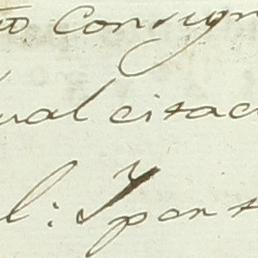 to consign
ual citac
l: Y por t